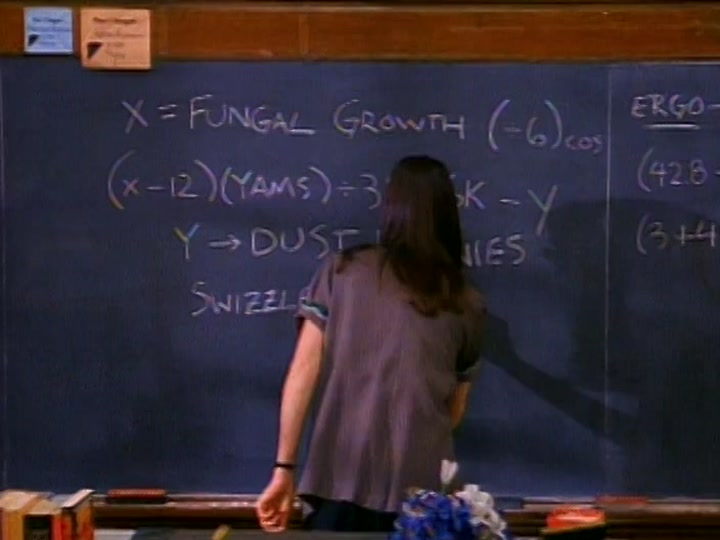 X = FUNGAL GROWTH (-6)cos
(x-12)(YAMS)÷3 SK - Y
Y → DUST NIES
SWIZZLE
ERGO-
(428
(3+4